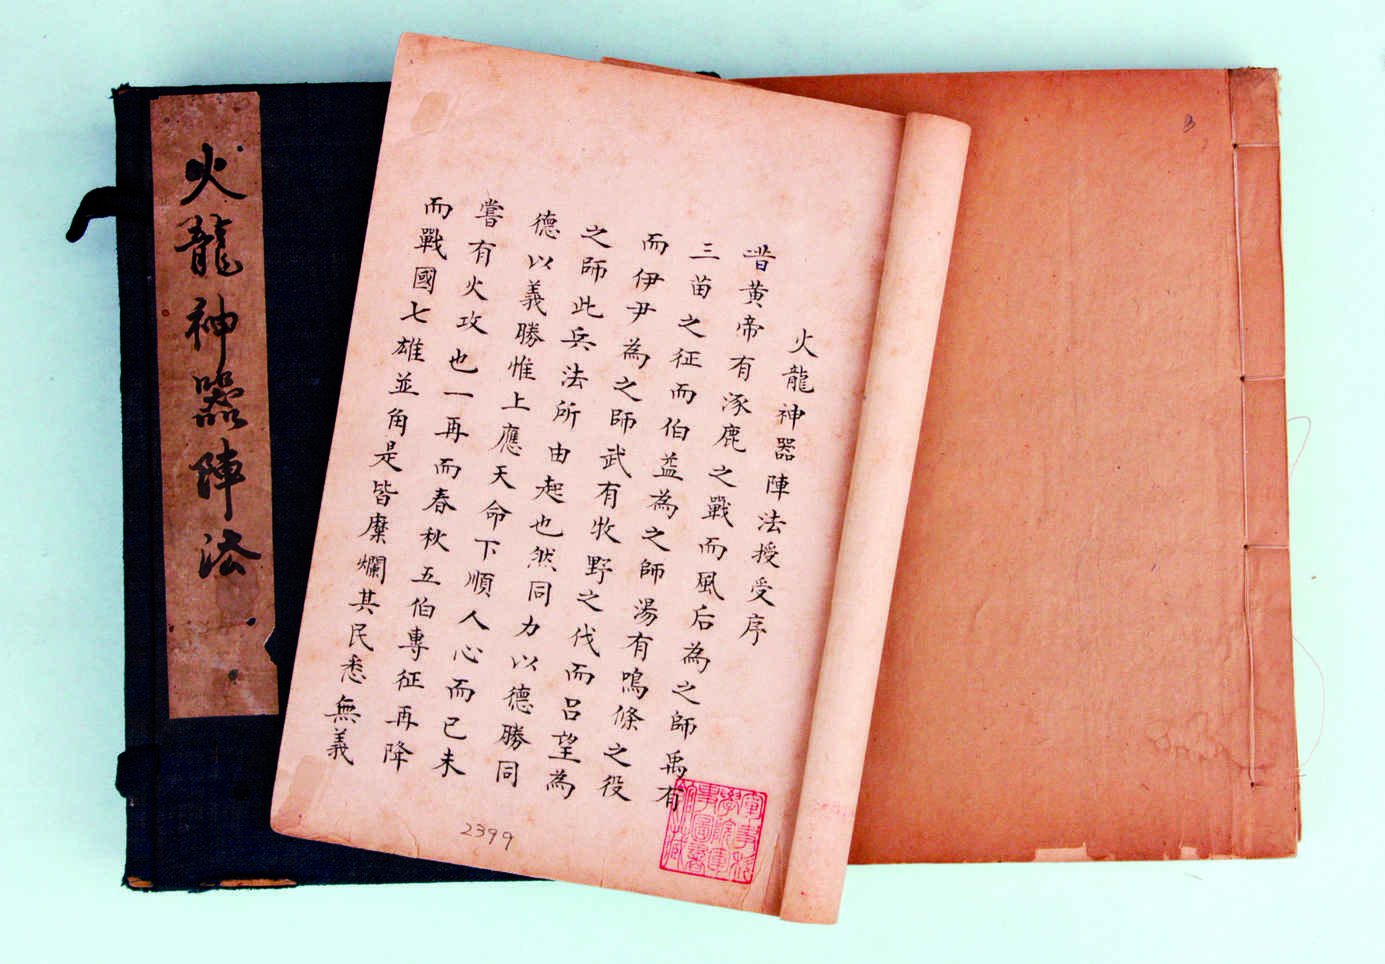 火龍神器陣法
火龍神器陣法授受序
昔黄帝有涿鹿之戰而風后為之師禹有
三苗之征而伯益為之師湯有鳴條之役
而伊尹為之師武有牧野之伐而呂望為
之師此兵法所由起也然同力以德勝同
德以義勝惟上應天命下順人心而已未
嘗有火攻也一再而春秋五伯專征再降
而戰國七雄並角是皆糜爛其民悉無義
2399
軍事科
學院軍
事圖書